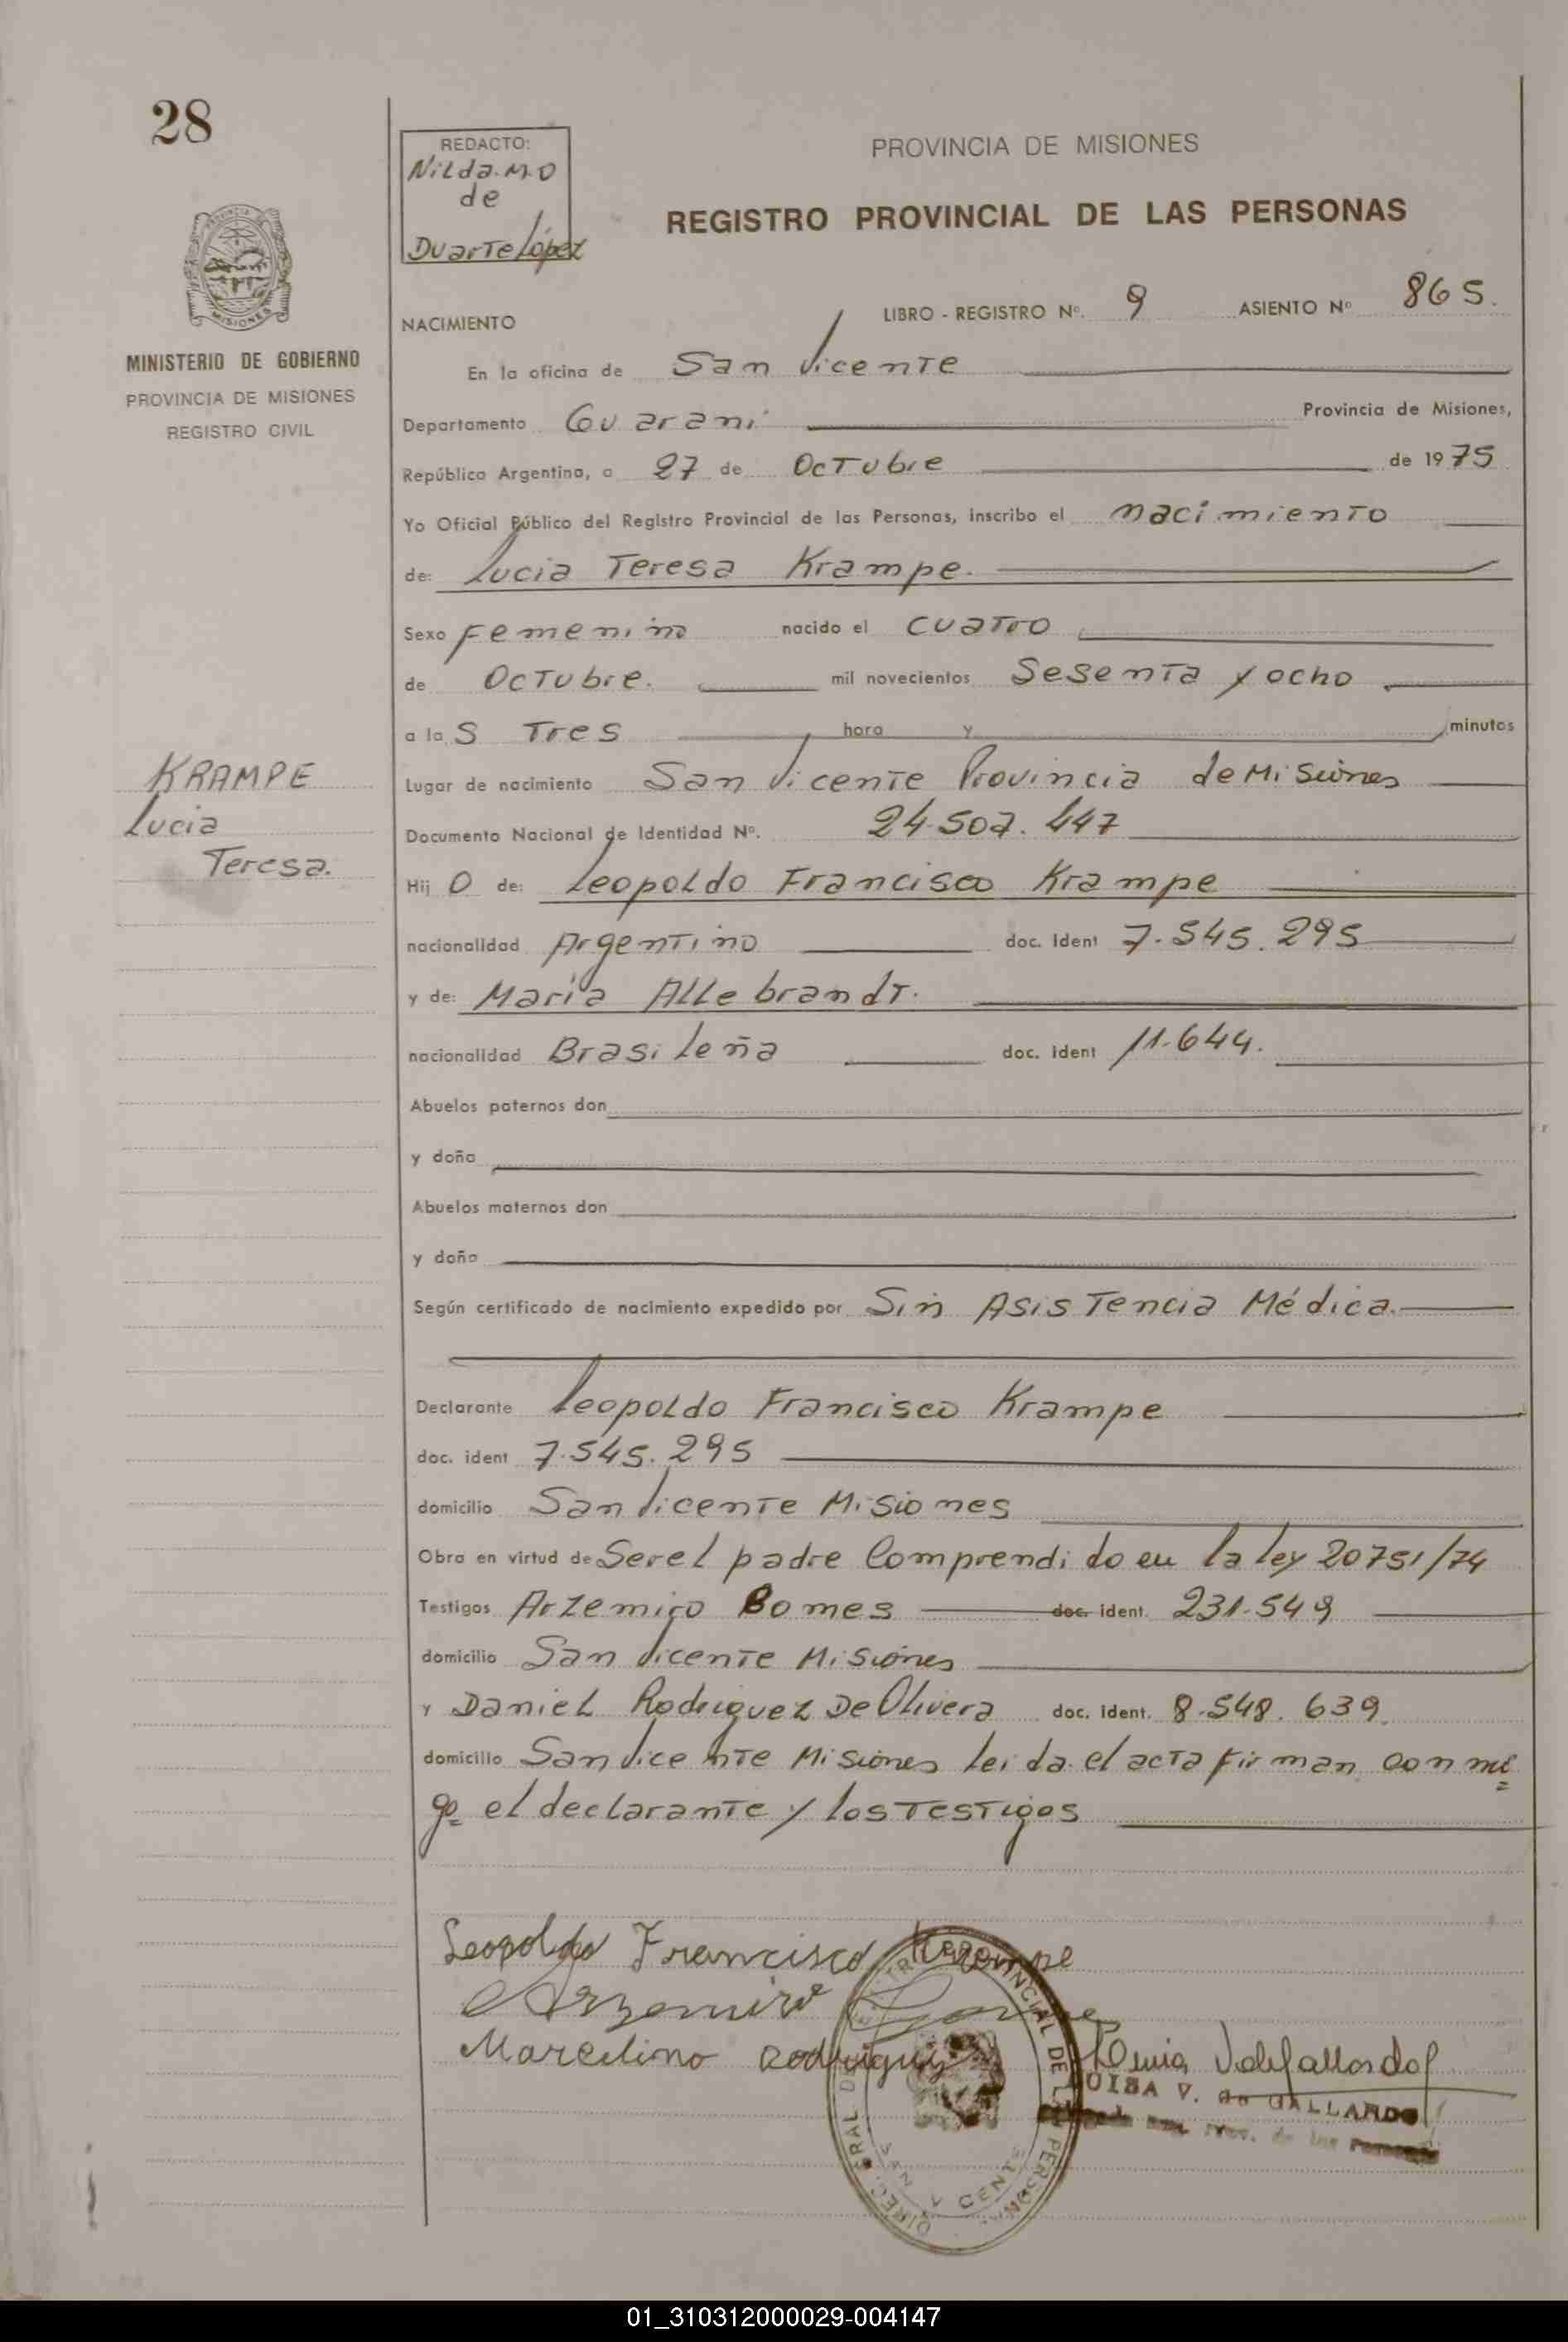 28
REDACTO:
Nilda. M. D
de
Duarte López
PROVINCIA DE MISIONES
REGISTRO PROVINCIAL DE LAS PERSONAS
MISIONES
MINISTERIO DE GOBIERNO
PROVINCIA DE MISIONES
REGISTRO CIVIL
NACIMIENTO LIBRO - REGISTRO Nº. 9 ASIENTO Nº 865.
En la oficina de San Vicente
Departamento Guaraní Provincia de Misiones,
República Argentina, a 27 de Octubre de 1975
Yo Oficial Público del Registro Provincial de las Personas, inscribo el nacimiento
de: Lucia Teresa Krampe.
Sexo Femenino nacido el cuatro
de Octubre. mil novecientos Sesenta y ocho
a la s Tres hora y minutos
KRAMPE
Lucia
Teresa.
Lugar de nacimiento San Vicente Provincia de Misiones
Documento Nacional de Identidad Nº. 24.507.447
Hij o de: Leopoldo Francisco Krampe
nacionalidad Argentino doc. ident 7.545.295
y de: María Allebrandt.
nacionalidad Brasileña doc. ident 11.644.
Abuelos paternos don
y doña
Abuelos maternos don
y doña
Según certificado de nacimiento expedido por Sin Asistencia Médica.
Declarante Leopoldo Francisco Krampe
doc. ident 7.545.295
domicilio San Vicente Misiones
Obra en virtud de Ser el padre Comprendido en la ley 20751/74
Testigos Arzemiro Gomes doc. ident. 231.549
domicilio San Vicente Misiones
y Daniel Rodriguez De Olivera doc. ident. 8.548.639.
domicilio San Vicente Misiones leida el acta firman con mi=
go= el declarante y los Testigos
Leopoldo Francisco Krampe
Arzemiro Gomes
Marcelino Rodriguez
V. de GALLARDO
Prov. de las Personas
PROVINCIAL DE LAS PERSONAS
SAN VICENTE
01_310312000029-004147